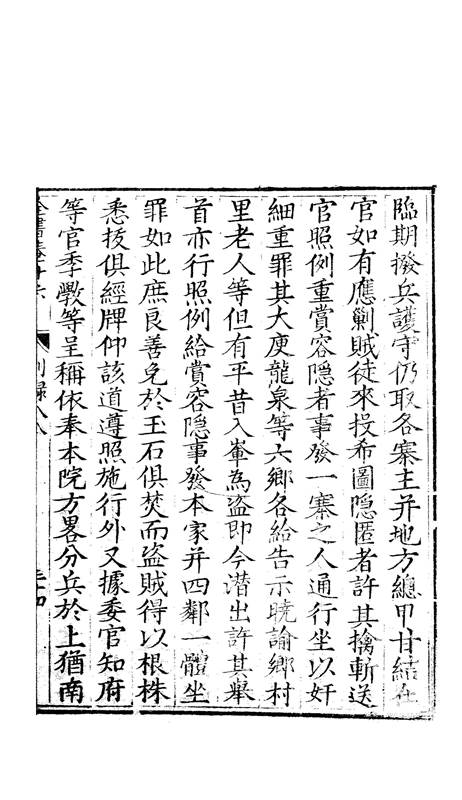 臨期撥兵護守仍取各寨主并地方總甲甘結在
官如有應剿賊徒來投希圖隱匿者許其擒斬送
官照例重賞容隱者事發一寨之人通行坐以奸
細重罪其大庾龍泉等六鄉各給告示曉諭鄉村
里老人等但有平昔入輋為盜即今潛出許其舉
首亦行照例給賞容隱事發本家并四鄰一體坐
罪如此庶良善免於玉石俱焚而盜賊得以根株
悉拔俱經牌仰該道遵照施行外又據委官知府
等官季斆等呈稱依奉本院方畧分兵於上猶南
全書卷十六 別錄八 三十四